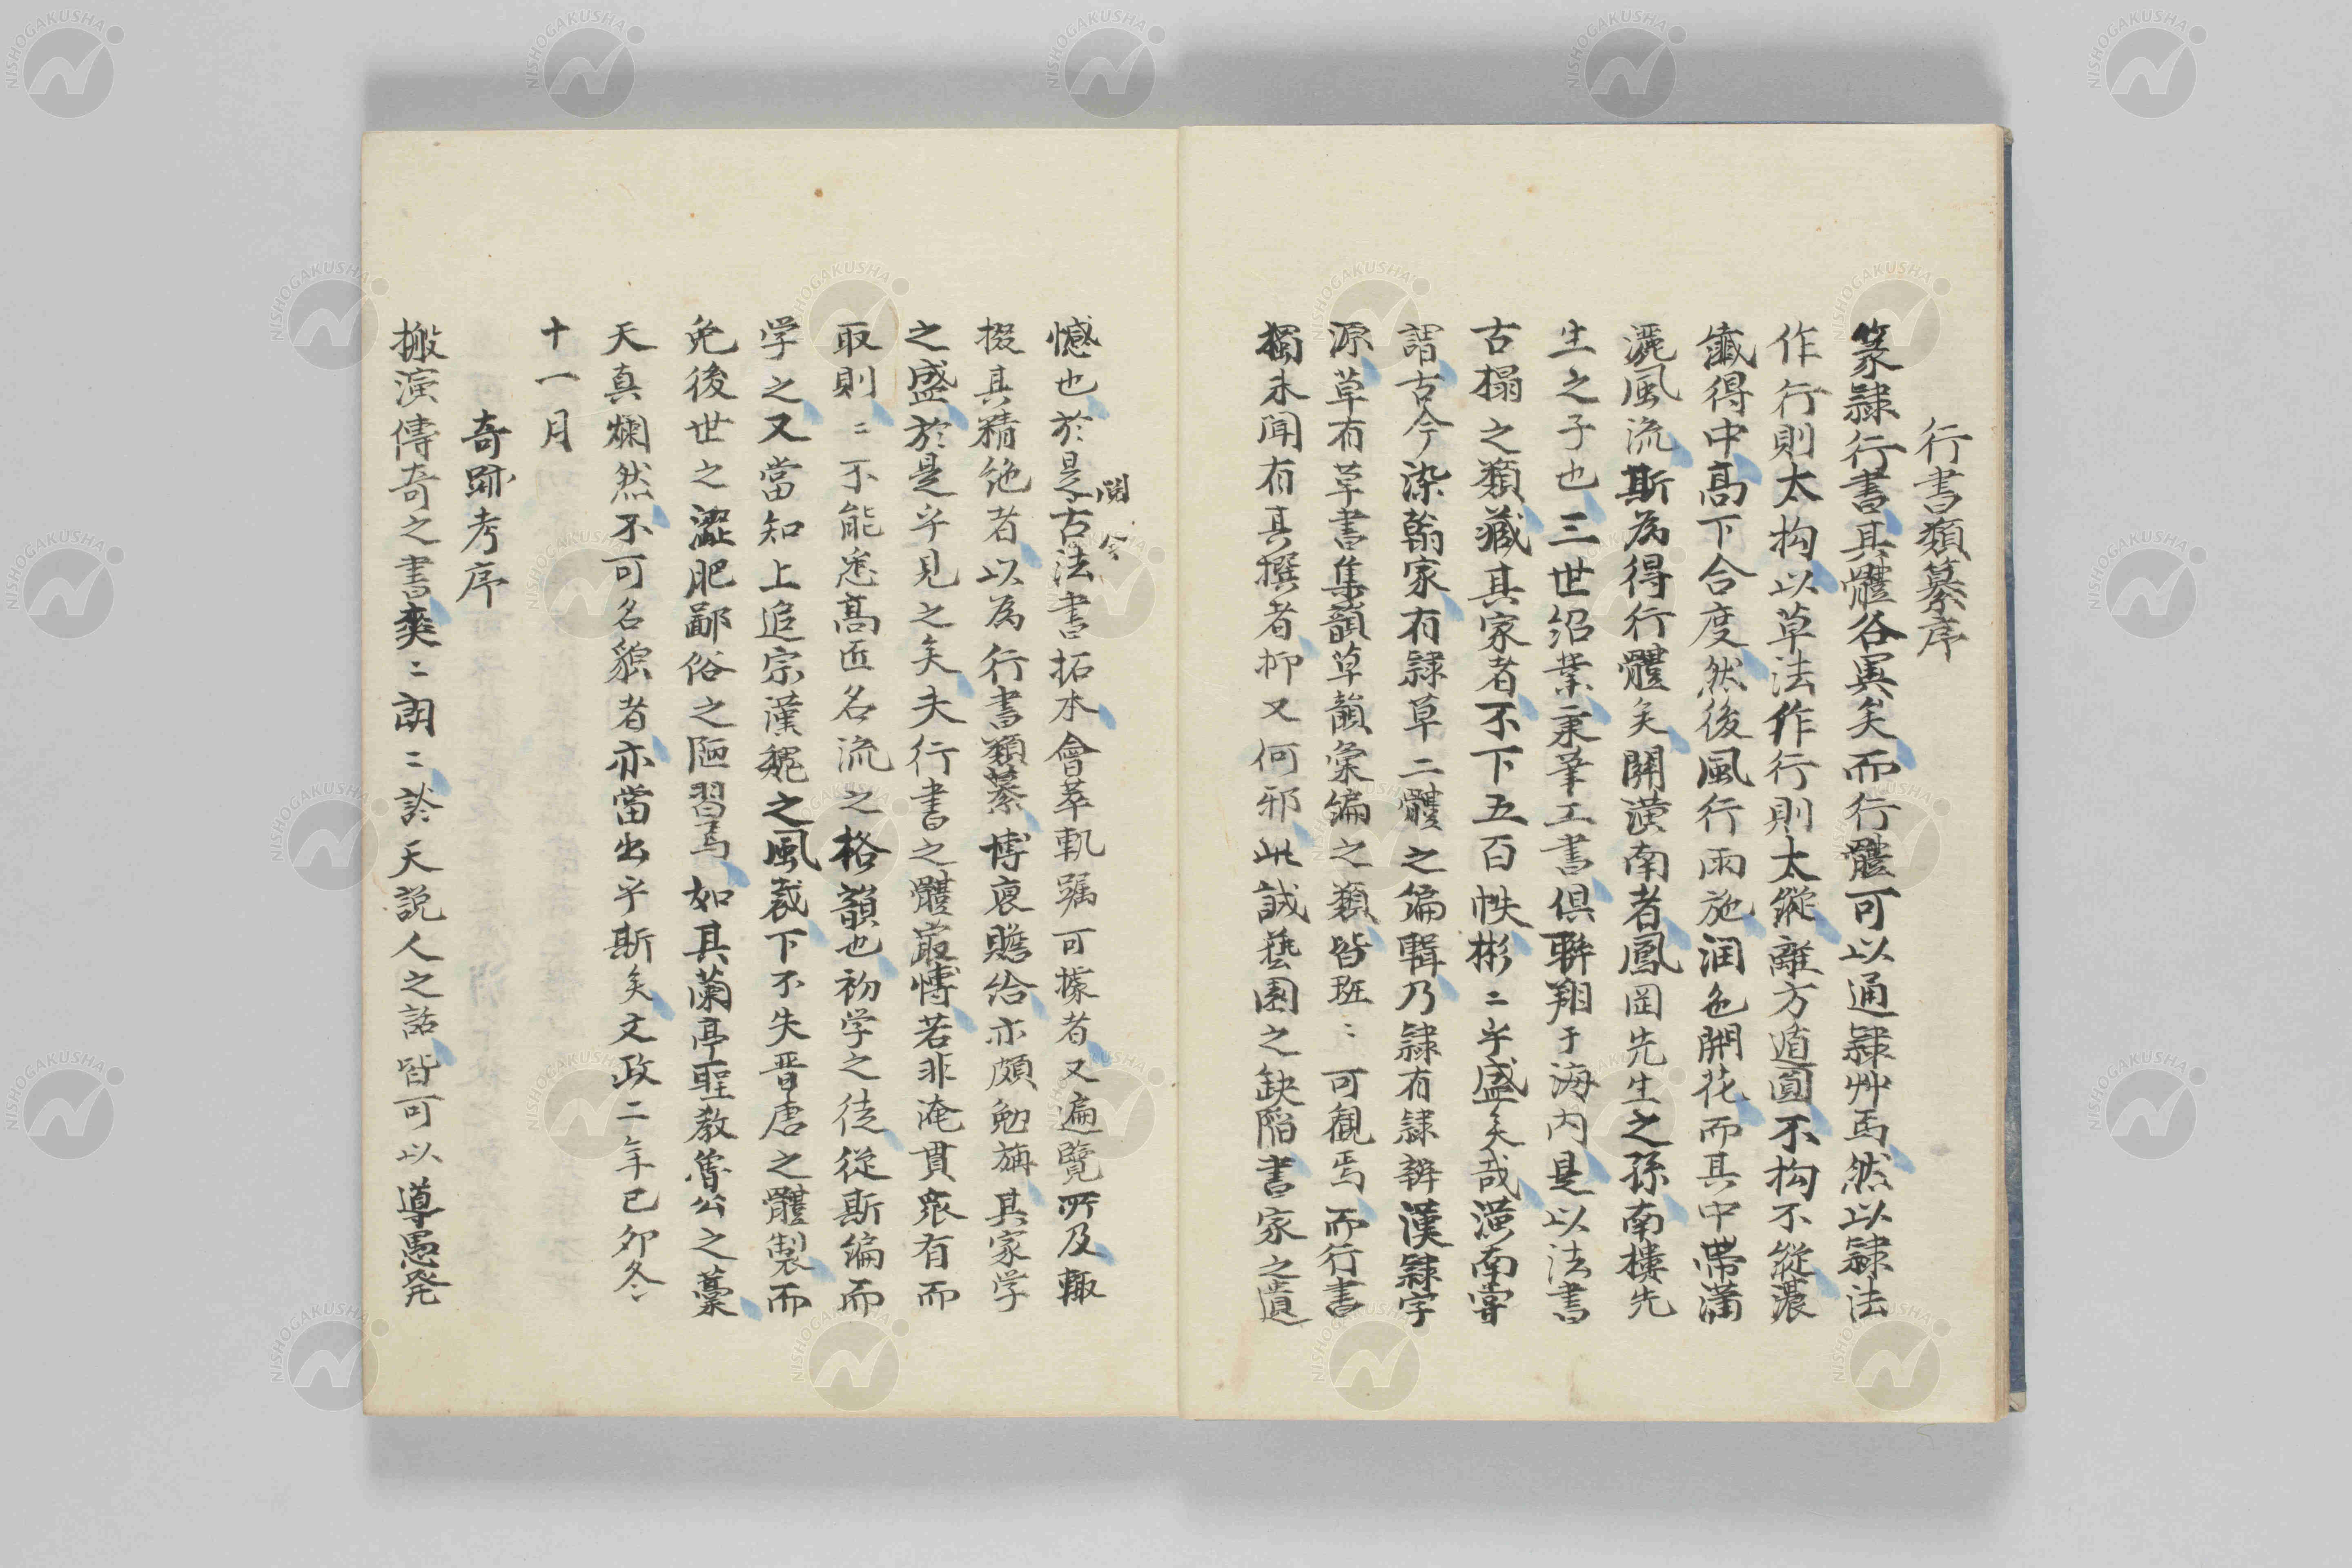 行書類纂序
篆隷行書其體各異矣而行體可以通隷艸焉然以隷法
作行則太拘以草法作行則太縱離方遁圓不拘不縱濃
纎得中高下合度然後風行雨施潤色開花而其中帶瀟
灑風流斯為得行體矣關潢南者鳳岡先生之孫南樓先
生之子也三世紹業秉筆工書倶聨翔于海内是以法書
古搨之類藏其家者不下五百帙彬〻乎盛矣哉潢南嘗
謂古今染翰家有隷草二體之編輯乃隷有隷辨漢隷字
源草有草書集韻草韻彙編之類皆班〻可観焉而行書
獨未聞有其撰者抑又何邪此誠藝園之缺陷書家之遺
憾也於是古法書拓本會萃軌躅可據者又遍覽所及輙
閲今
掇其精絶者以為行書類纂博裒贍給亦頗勉旃其家学
之盛於是乎見之矣夫行書之體最博若非淹貫衆有而
取則〻不能悉高匠名流之格韻也初学之徒從斯編而
学之又當知上追宗漢魏之風裁下不失晋唐之體製而
免後世之澀肥鄙俗之陋習焉如其蘭亭聖教魯公之藁
天真爛然不可名貌者亦當出乎斯矣文政二年己卯冬
十一月
奇跡考序
搬演傳奇之書奕〻朗〻談天説人之話皆可以導愚発